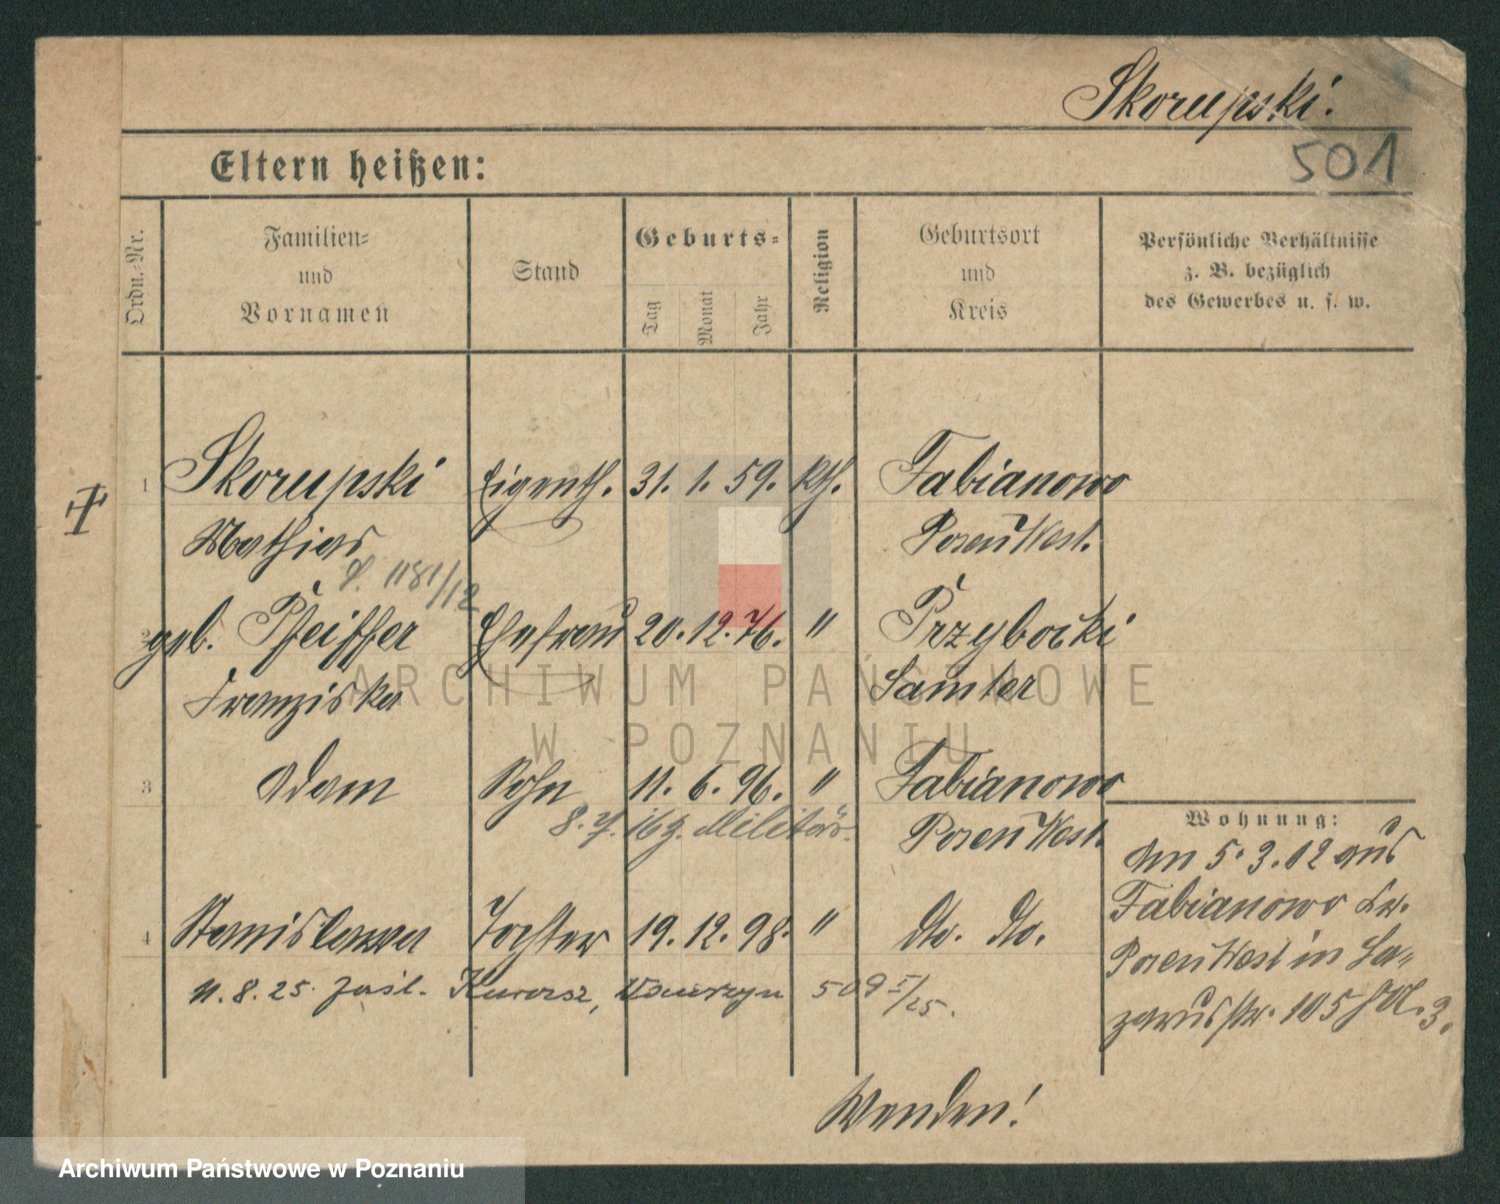 Skorupski.
501
Eltern heißen:
Ordn.-Nr.
Familien- und Vornamen
Stand
Geburts-
Tag
Monat
Jahr
Religion
Geburtsort und Kreis
Persönliche Verhältnisse
z. B. bezüglich
des Gewerbes u. s. w.
1 Skorupski Eigenth. 31. 1. 59. kth. Fabianowo
Mathias Posen West.
S. 1181/12
2 geb. Pfeiffer Ehefrau 20. 12. 76. " Przyborki
Franziska Samter
3 Adam Sohn 11. 6. 96. " Fabianowo
8. 7. 16 z. Militär. Posen West.
Wohnung:
Am 5. 3. 12 aus
Fabianowo Kr.
Posen West in La-
zarusstr. 105
4 Stanislawa Tochter 19. 12. 98. " dto. dto.
11. 8. 25. 509 I/25.
Wenden!
ARCHIWUM PAŃSTWOWE
W POZNANIU
Archiwum Państwowe w Poznaniu